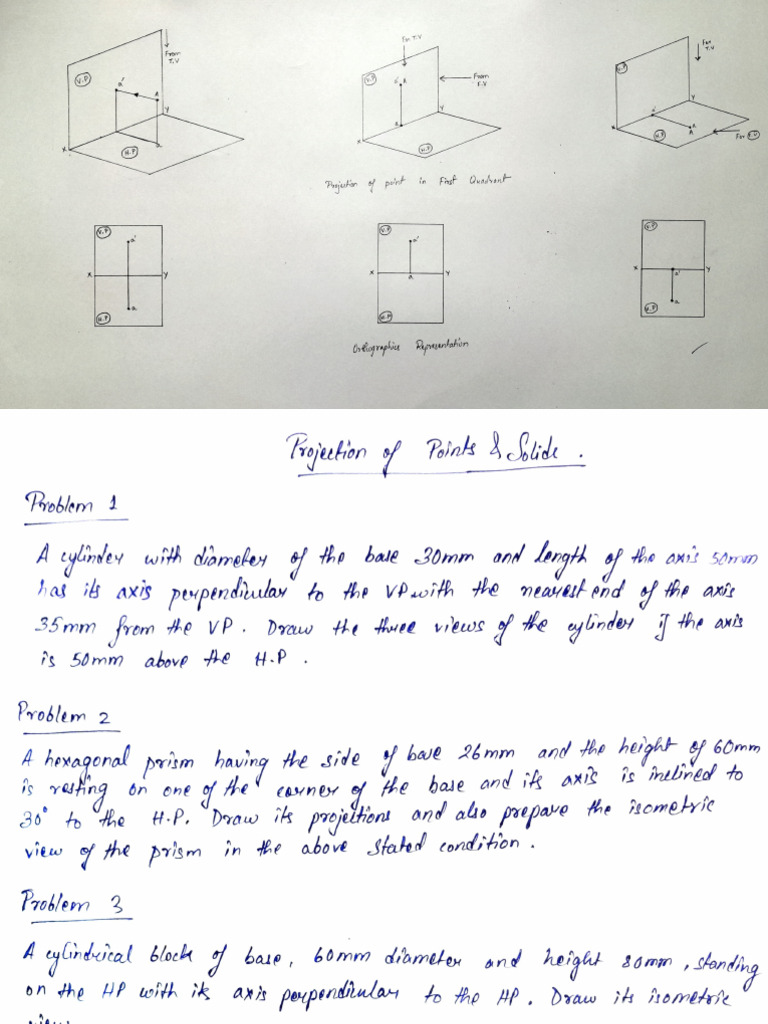 From
T.V
V.P
a'
A
Y
X
H.P
a
For T.V
V.P
a' A
From
F.V
Y
X
a
H.P
For
T.V
V.P
Y
a'
A
X
H.P
For F.V
Projection of point in First Quadrant
V.P
a'
X Y
a
H.P
V.P
a'
X Y
a
H.P
V.P
X a' Y
a
H.P
Orthographic Representation
Projection of Points & Solids.
Problem 1
A cylinder with diameter of the base 30mm and length of the axis 50mm
has its axis perpendicular to the VP with the nearest end of the axis
35mm from the VP. Draw the three views of the cylinder if the axis
is 50mm above the H.P.
Problem 2
A hexagonal prism having the side of base 26mm and the height of 60mm
is resting on one of the corner of the base and its axis is inclined to
30° to the H.P. Draw its projections and also prepare the isometric
view of the prism in the above stated condition.
Problem 3
A cylindrical block of base, 60mm diameter and height 80mm, standing
on the HP with its axis perpendicular to the HP. Draw its isometric
view.